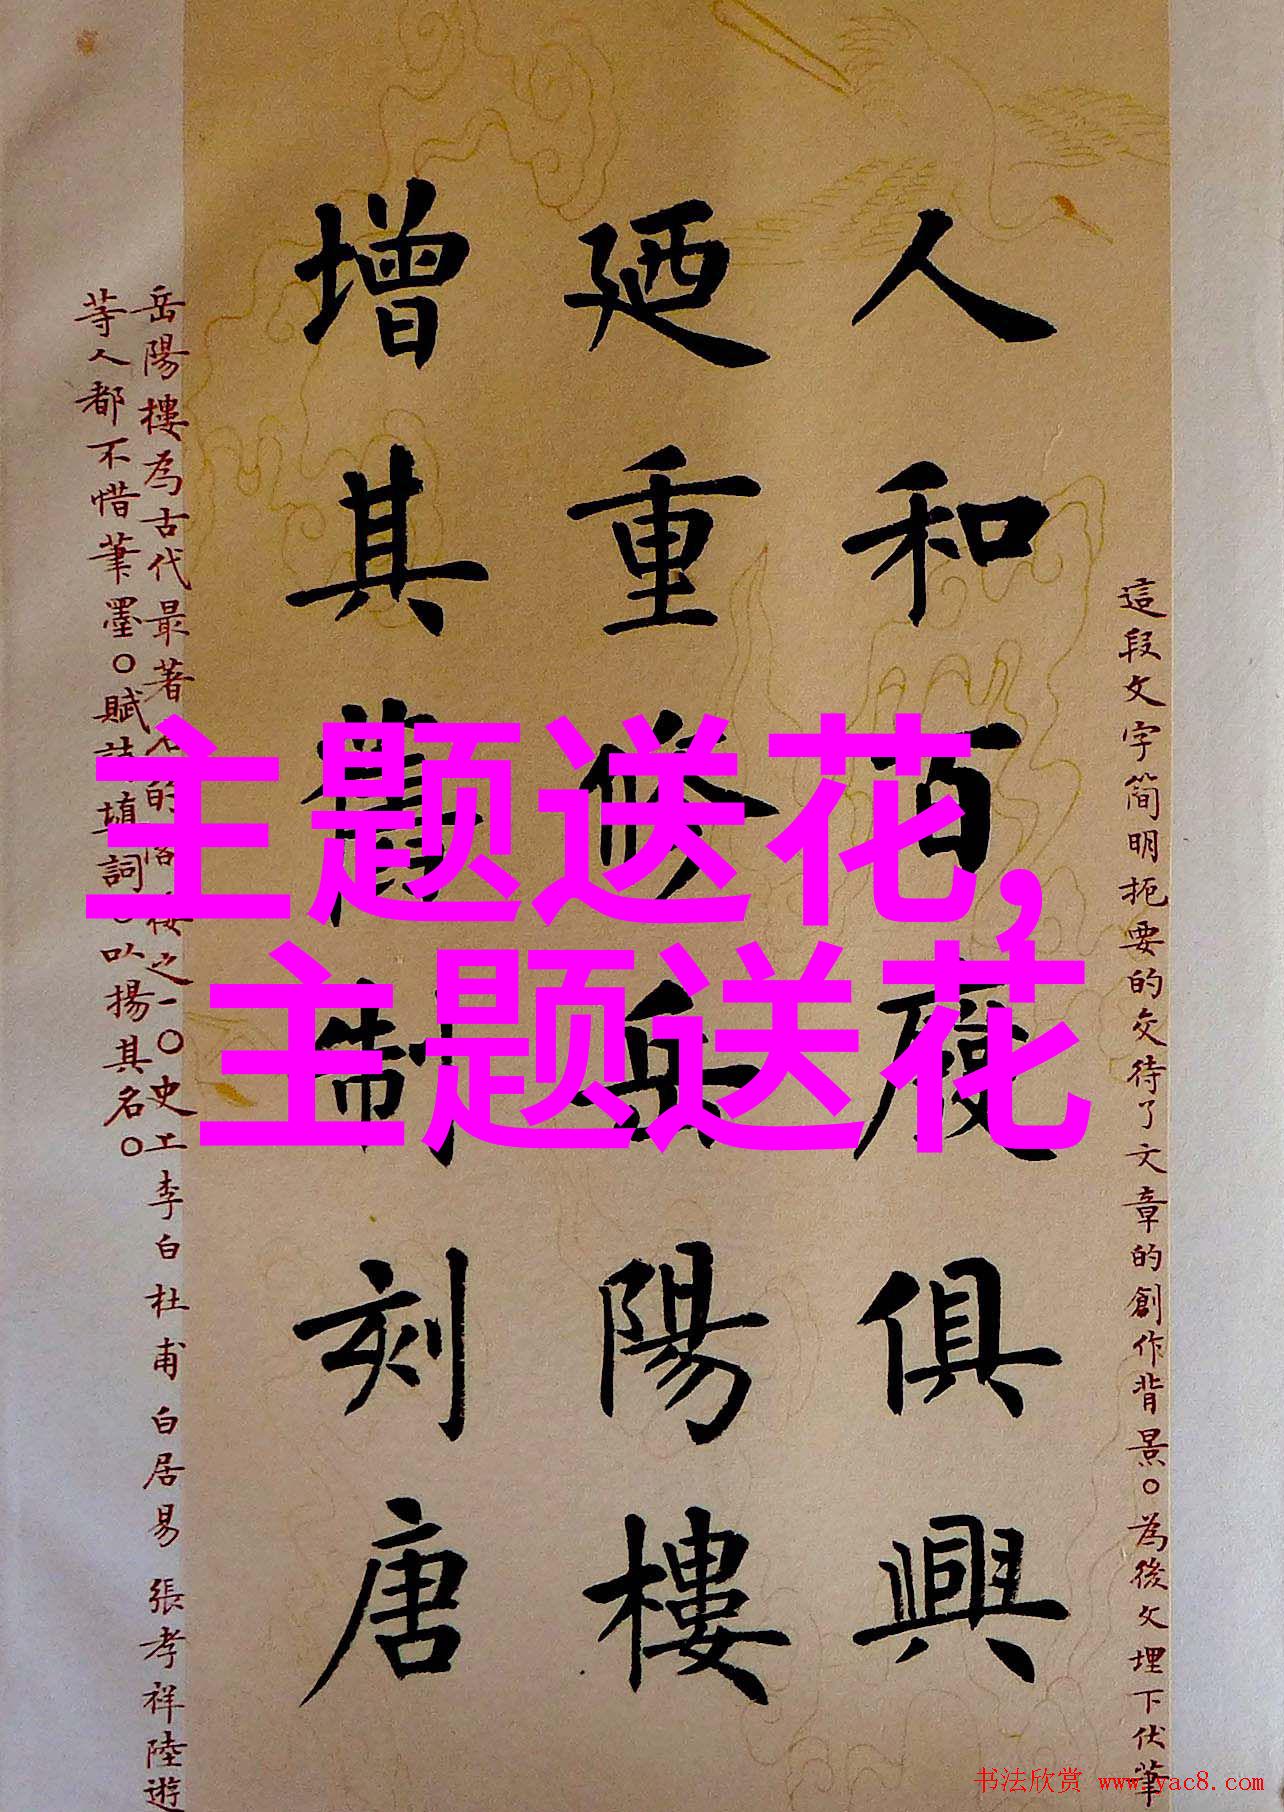 人和百廢俱興
廼重修岳陽樓
增其舊制刻唐
這段文字简明扼要的交待了文章的創作背景。為後文埋下伏筆
岳陽樓為古代最著名的 樓之一。史上李白 杜甫 白居易 張孝祥 陸遊
等人都不惜筆墨。賦詩填詞。以揚其名。
主题送花,
主题送花
书法欣赏 www.yac8.com